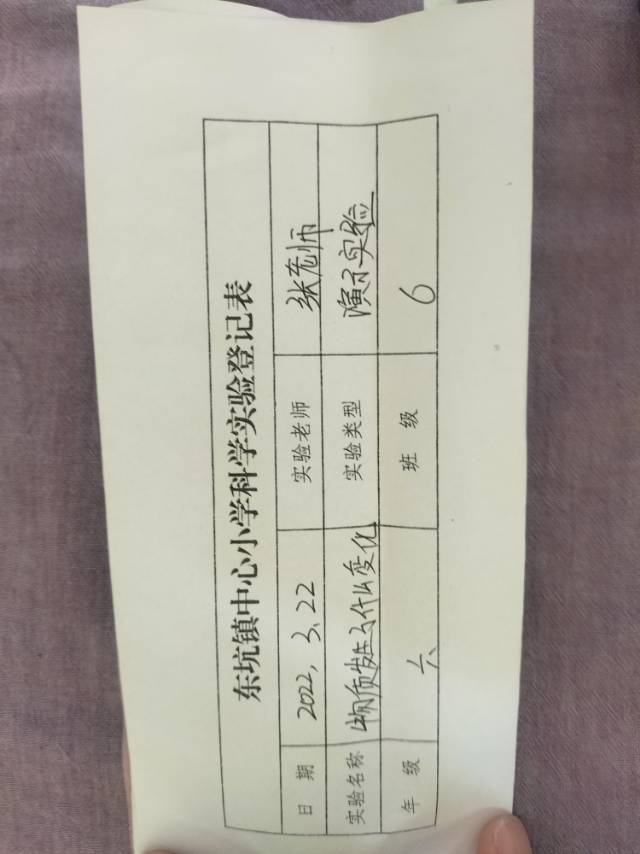 东坑镇中心小学科学实验登记表
日 期 2022.3.22 实验老师 张老师
实验名称 物质发生了什么变化 实验类型 演示实验
年 级 六 班 级 6